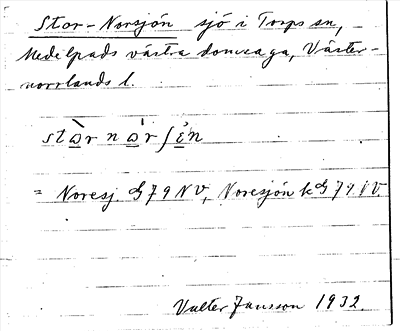 Stor-Norsjön sjö i Torps sn,
Medelpads västra domsaga, Väster-
norrlands l.
stὼr nω̍rʃėn
= Noresj. G79NV, Noresjön k G79NV.
Valter Jansson 1932.